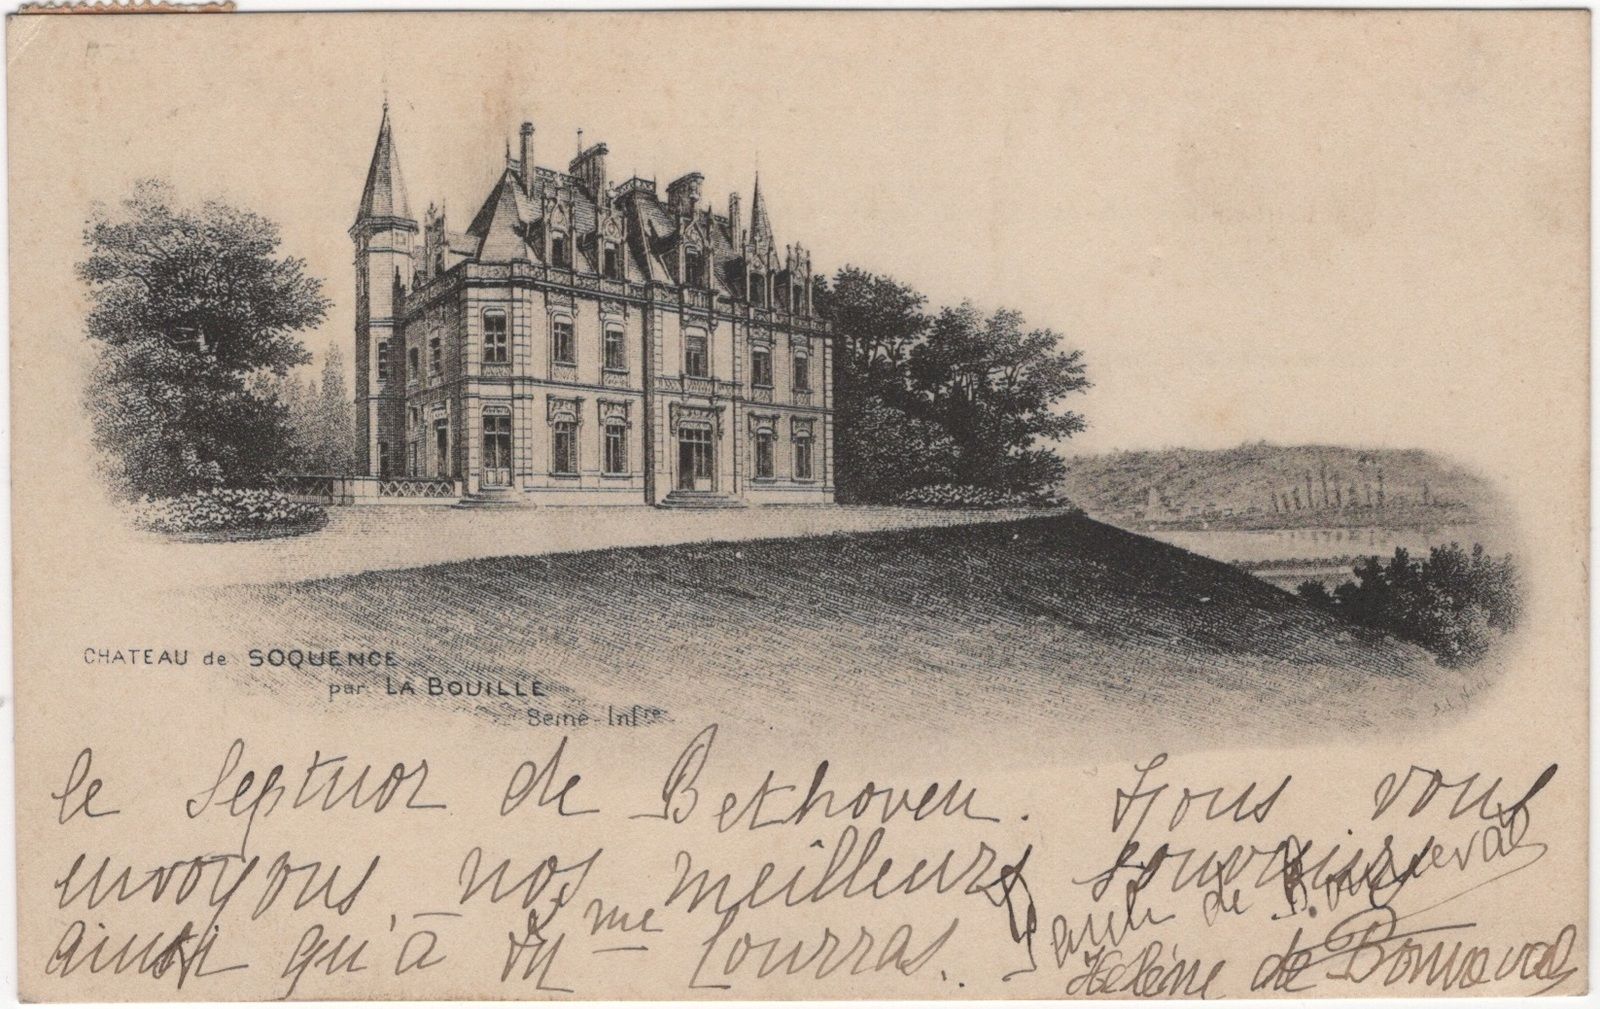 CHATEAU de SOQUENCE
par LA BOUILLE
Seine-Infre
le Septuor de Bethoven. Nous vous
envoyons nos meilleurs souvenirs
ainsi qu'à Mme Courras.
de Bonneval
Hélène de Bonneval